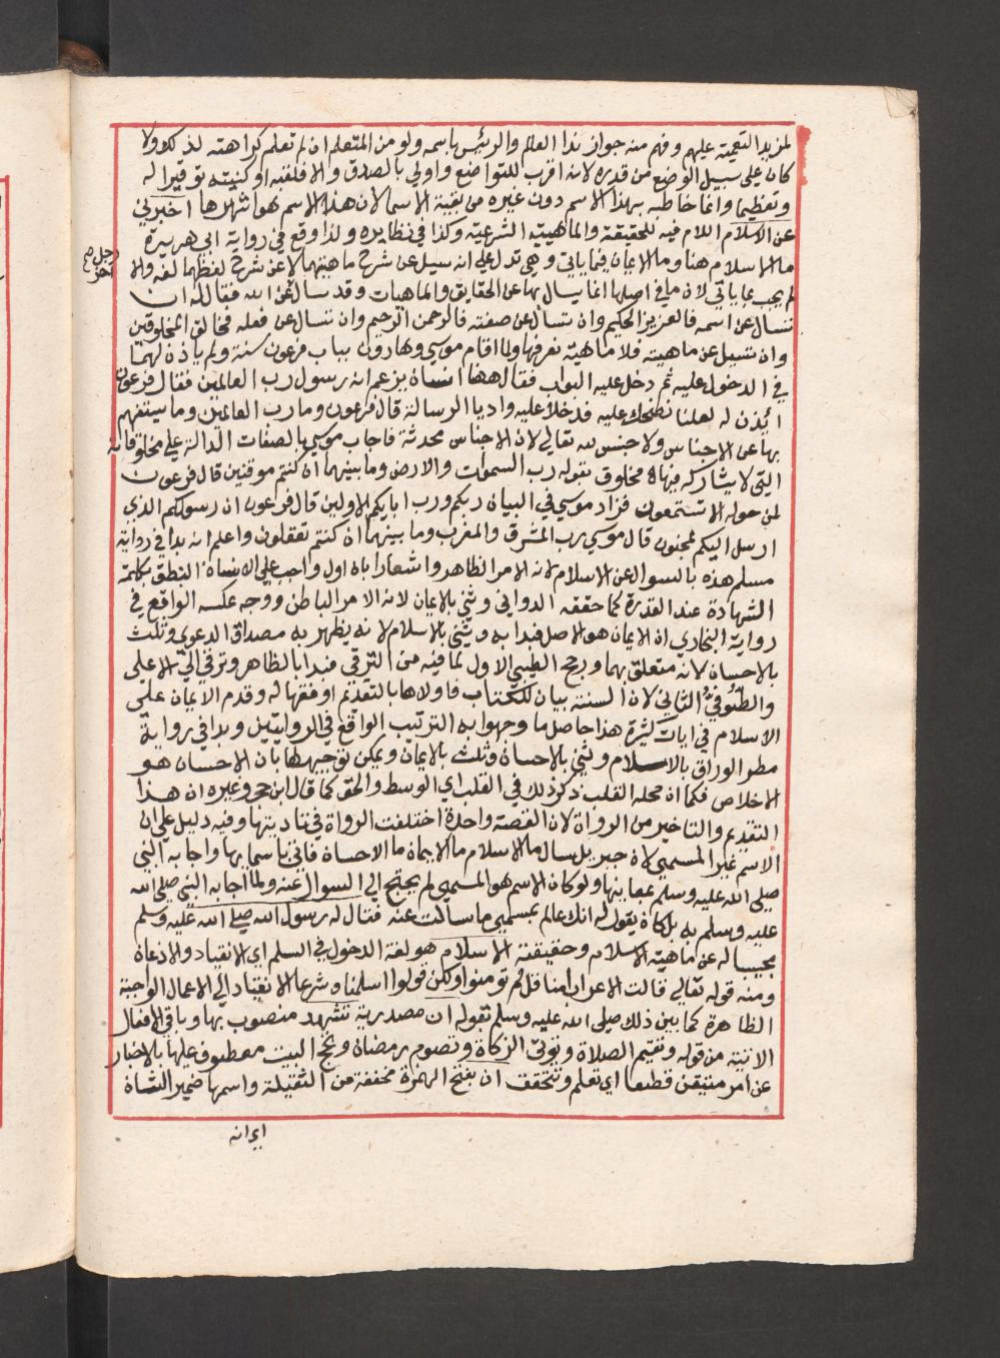 لمزيد التعمية عليهم وفهم منه جواز ندا العالم والرئيس باسمه ولو من المتعلم ان لم تعلم كراهته لذلك ولا
كان على سبيل الوضع من قدره لانه اقرب للتواضع واولي بالصدق والا فلقبه او كنيته توقيرا له
وتعظيما وانما خاطبه بهذا الاسم دون غيره من بقية الاسما لان هذا الاسم هو اشهرها اخبرني
عن الاسلام اللام فيه للحقيقة والماهية الشرعية وكذا في نظايره ولذا وقع في رواية ابي هريرة
ما الاسلام هنا وما الايمان فيما ياتي وهي تدل على انه سيل عن شرح ماهيتهما لا عن شرح لفظهما لغة والا
لم يجب بما ياتي لان ما في اصلها انما يسال بها عن الحقايق والماهيات وقد سال عن الله فقال له ان
تسال عن اسمه فالعزيز الحكيم وان تسال عن صفته فالرحمن الرحيم وان تسال عن فعله فخالق المخلوقين
وان تسيل عن ماهيته فلا ماهية نعرفها ولما اقام موسى وهارون بباب فرعون سنة ولم ياذن لهما
في الدخول عليه ثم دخل عليه البواب فقال ههنا انسان يزعم انه رسول رب العالمين فقال فرعون
ائذن له لعلنا نضحك عليه فدخلا عليه واديا الرسالة قال فرعون وما رب العالمين وما يستفهم
بها عن الاجناس ولا جنس لله تعالى لان الاجناس محدثة فاجاب موسى بالصفات الدالة على مخلوقاته
التي لا يشاركه فيها مخلوق بقوله رب السموات والارض وما بينهما ان كنتم موقنين قال فرعون
لمن حوله الا تستمعون فزاد موسى في البيان ربكم ورب ابايكم الاولين قال فرعون ان رسولكم الذي
ارسل اليكم لمجنون قال موسى رب المشرق والمغرب وما بينهما ان كنتم تعقلون واعلم انه بدا في رواية
مسلم هذه بالسوال عن الاسلام لانه الامر الظاهر واشعارا بان اول واجب على الانسان النطق بكلمة
الشهادة عند القدرة كما حققه الدواني وثني بالايمان لانه الامر الباطن ووجه عكسه الواقع في
رواية البخاري ان الايمان هو الاصل فبدا به وثني بالاسلام لانه يظهر به مصداق الدعوى وثلث
بالاحسان لانه متعلق بهما ورجح الطيبي الاول لما فيه من الترقي فبدا بالظاهر وترقي الى الاعلى
والطوفي الثاني لان السنة بيان للكتاب فاولاها بالتقديم اوفقها له وقدم الايمان على
الاسلام في ايات كثيرة هذا حاصل ما وجهوا به الترتيب الواقع في الروايتين وبدا في رواية
مطر الوراق بالاسلام وثني بالاحسان وثلث بالايمان ويمكن توجيهها بان الاحسان هو
الاخلاص فكما ان محله القلب ذكر ذلك في القلب اي الوسط والحق كما قال ابن حجر وغيره ان هذا
التقديم والتاخير من الرواة لان القصة واحدة اختلفت الرواة في تاديتها وفيه دليل على ان
الاسم غير المسمى لان جبريل سال ما الاسلام ما الايمان ما الاحسان فاتى باسمايها واجابه النبي
صلى الله عليه وسلم بمعاينها ولو كان الاسم هو المسمى لم يحتج الى السوال عنه ولما اجابه النبي صلى الله
عليه وسلم به بل كان يقول له انك عالم بمسمى ما سالت عنه فقال له رسول الله صلى الله عليه وسلم
مجيبا له عن ماهية الاسلام وحقيقته الاسلام هو لغة الدخول في السلم اي الانقياد والاذعان
ومنه قوله تعالى قالت الاعراب امنا قل لم تومنوا ولكن قولوا اسلمنا وشرعا الانقياد الى الاعمال الواجبة
الظاهرة كما بين ذلك صلى الله عليه وسلم بقوله ان مصدرية تشهد منصوب بها وباقي الافعال
الاتية من قوله وتقيم الصلاة وتوتي الزكاة وتصوم رمضان وتحج البيت معطوف عليها بالاخبار
عن امر متيقن قطعا اي تعلم وتتحقق ان بفتح الهمزة مخففة من الثقيلة واسمها ضمير الشان
اي انه